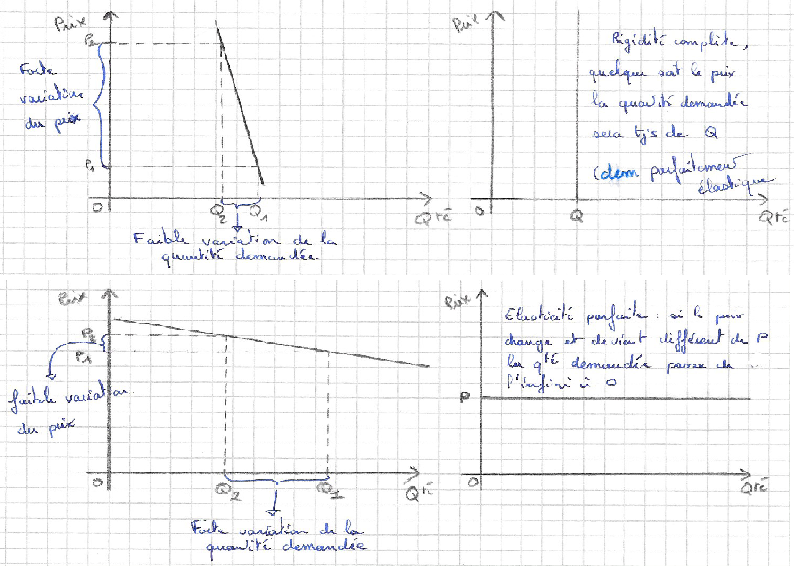 Prix
P2
Forte
variation
du prix
P1
O
Q2
Q1
Qté
Faible variation de la
quantité demandée.
Prix
Rigidité complète,
quelque soit le prix
la quantité demandée
sera tjs de Q
(dem parfaitement
élastique
O
Q
Qté
Prix
P2
P1
faible variation
du prix
O
Q2
Q1
Qté
Forte variation de la
quantité demandée
Prix
Elasticité parfaite : si le prix
change et devient différent de P
la qté demandée passe de
l'infini à O
P
O
Qté